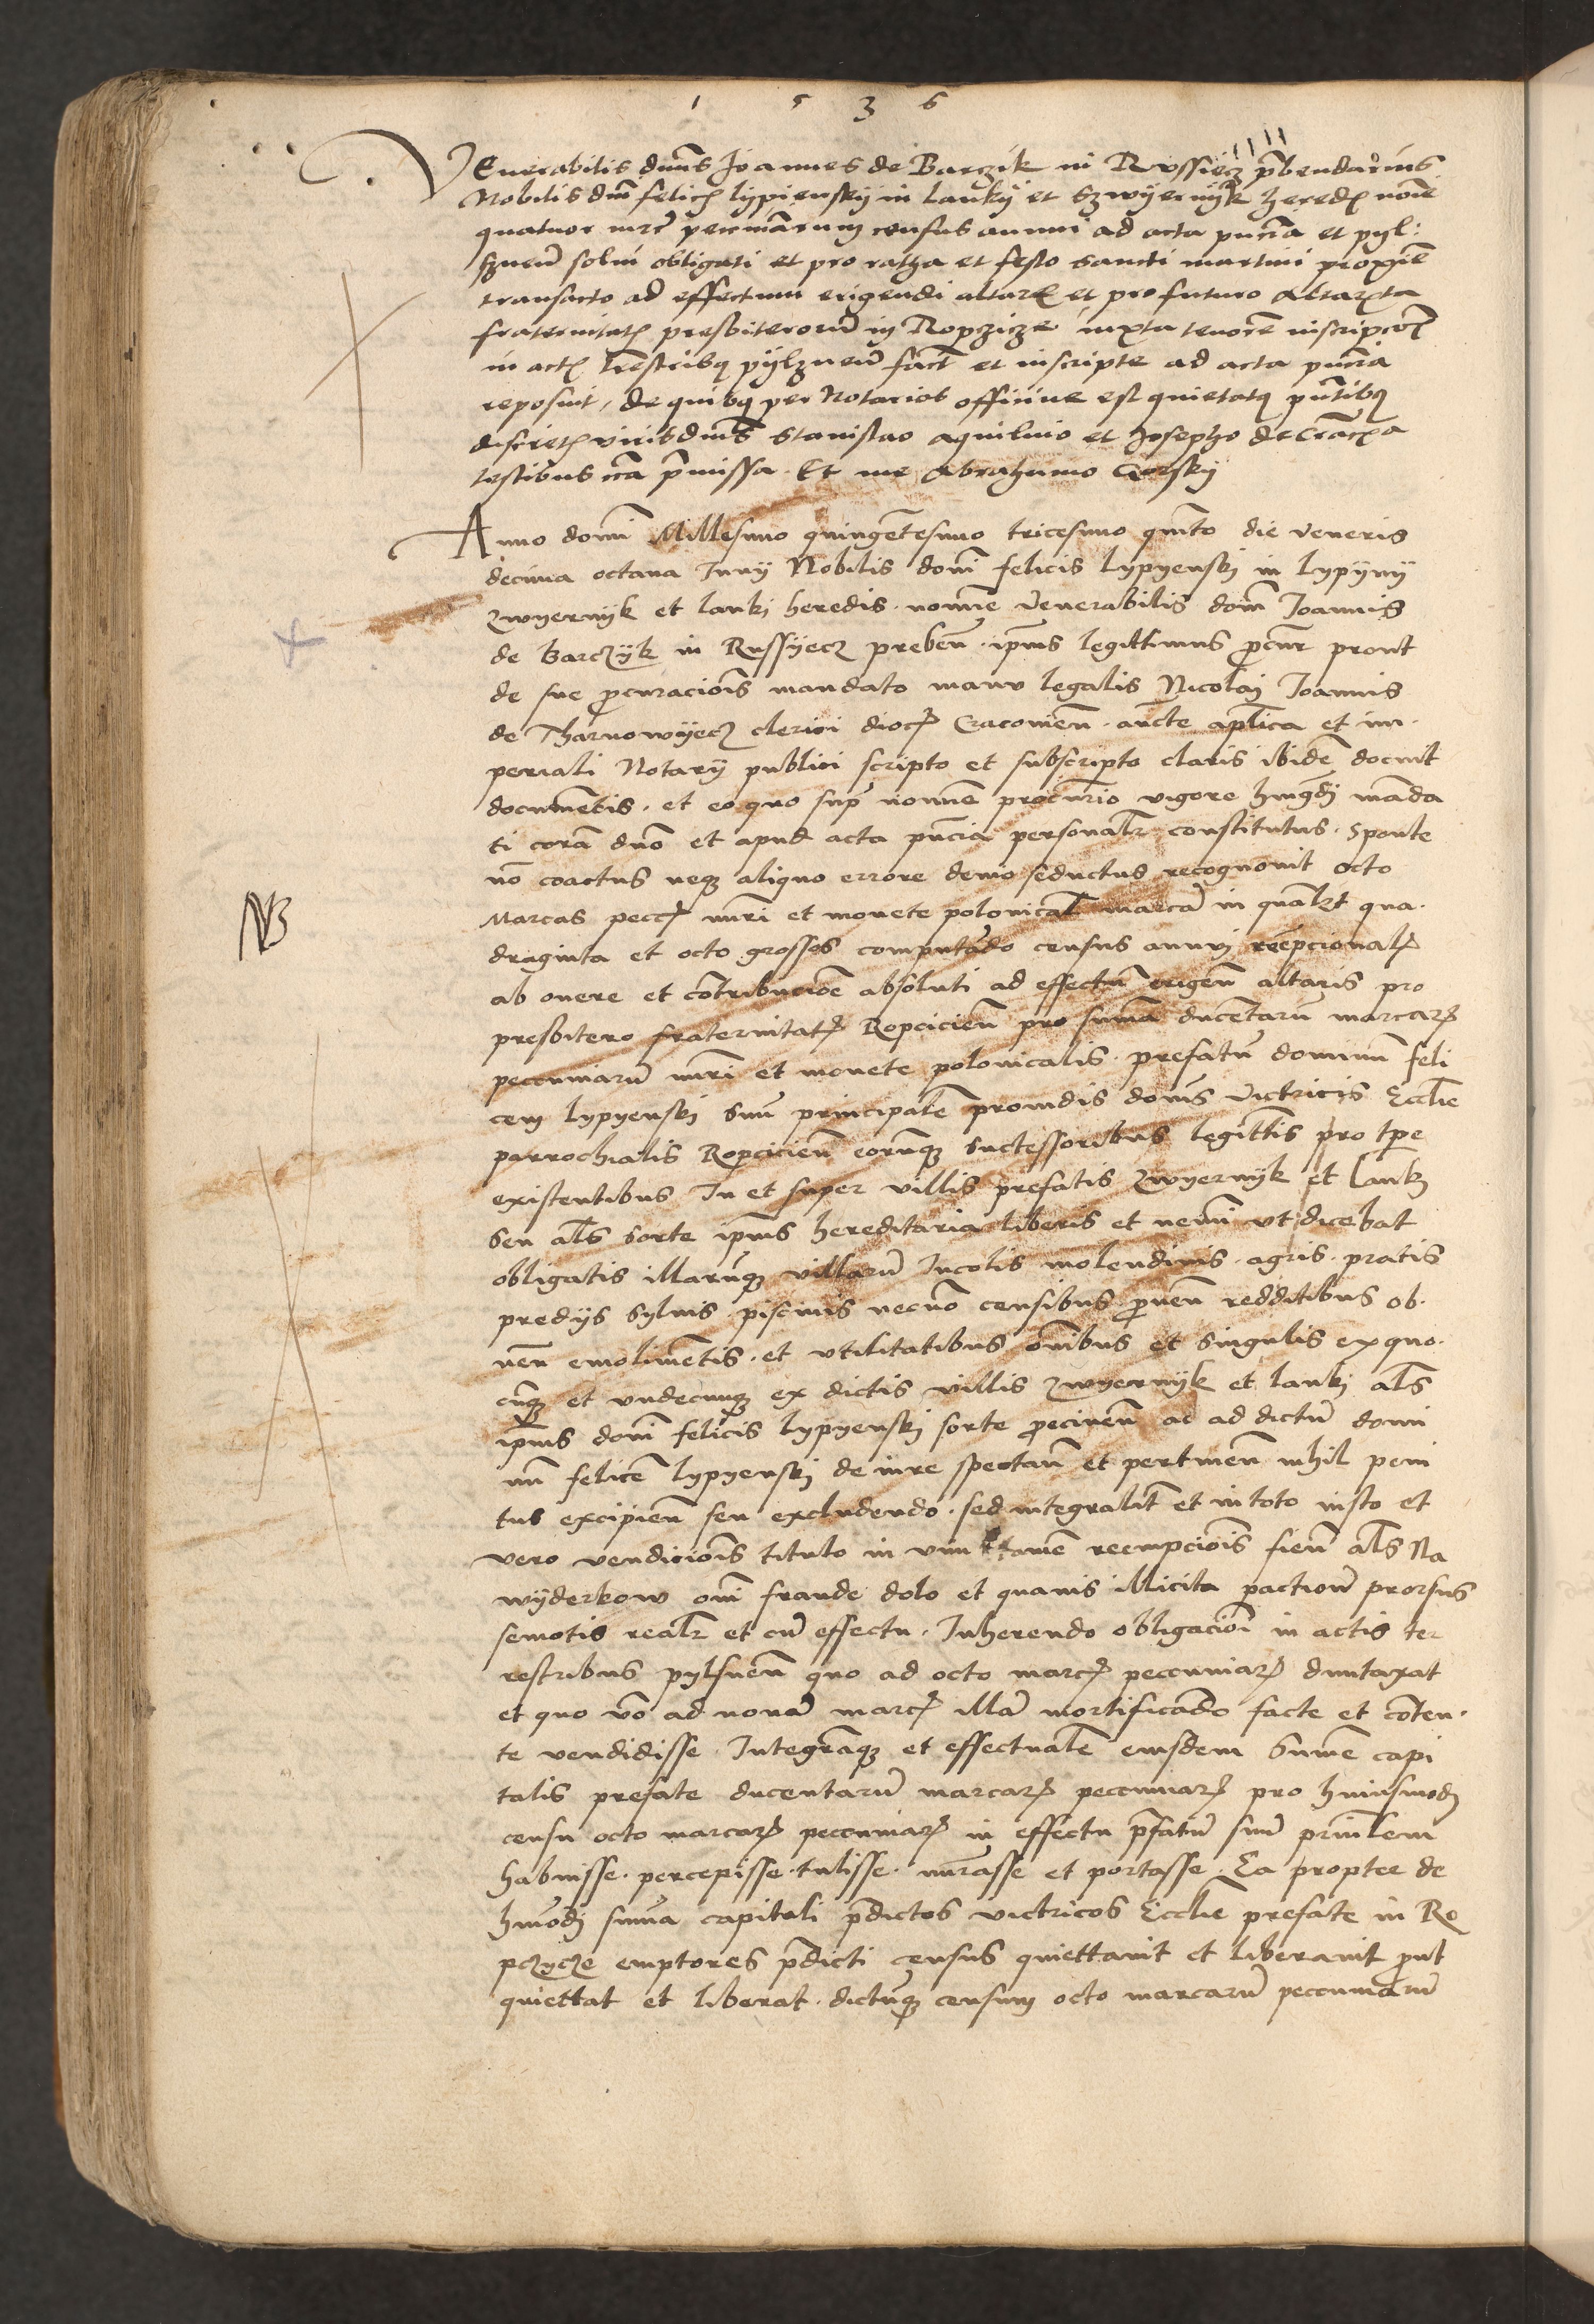 1 5 3 6
Venerabilis dnus Joannes de Barczik in Russiecz prebendarius
Nobilis dni felicis lypiensky in lanky et Szwyernyk heredis noie
quatuor mrc pecuniarum census annui ad acta pntia et pyl:
sznen solui obligati et pro ratha et festo sancti martini proxime
transacto ad effectum erigendi altaris et pro futuro altarista
fraternitatis presbiterorum in Ropczicze iuxta tenorem inscripcois
in actis trestribus pylznen fact et inscripte ad acta pntia
reposuit, de quibus per Notarios officiue est quietatus pntibus
discretis viris dnis Stanislao aquilino et Josepho de Cracovia
testibus cca premissa. Et me Abrahamo Gorsky
Anno domi Millesimo quingentesimo tricesimo quinto die veneris
decima octaua Iuny Nobilis domi felicis lypyenskj in lypyny
zwyernyk et lankj heredis. nomine venerabilis domi Joannis
de Barczyk in Russyecz preben. ipius legittimus procur prout
de sue procuracionis mandato manu legalis Nicolaj Joannis
de Tharnowyecz clerici dioc Cracouien. aucte aplica et im.
periali Notarij publici scripto et subscripto claris ibidem docuit
documentis. et eo quo supra nomine procurrio vigore huiusmodi manda
ti coram dno et apud acta pntia personalr constitutus. Sponte
no coactus neque aliquo errore deuio seductus recognouit octo
Marcas pecc nuri et monete polonicalis marcam in qualzt qua.
draginta et octo grossos computando census annuj reempcionalis
ab onere et contribucioe absoluti ad effectum erigen altaris pro
presbitero fraternitatis Ropcicien pro suma ducentarum marcar
peccuniarum nuri et monete polonicalis. prefatum dominum feli
cem lypyenskj suum principalem prouidis domis victricis Ecclie
parrochialis Ropcicien eorumque successoribus legittis pro tpe
existentibus In et super villis prefatis zwyernyk et lankj
seu als sorte ipius hereditaria liberis et nemini vt dicebat
obligatis illarumque villarum Incolis molendinis. agris. pratis
predijs syluis. piscinis necno censibus prouen redditibus ob.
uen emolimentis. et vtilitatibus omnibus et singulis ex quo.
cunque et vndecunque ex dictis villis zwyernyk et lankj als
ipius domi felicis lypyenskj sorte prouenien ac ad dictum domi
num felicem lypyenskj de iure spectan et pertinen nihil peni
tus excipien seu excludendo. sed integraliter et in toto iusto et
vero vendicionis titulo in vim tamen reempcionis fien als Na
wyderkow omni fraude dolo et quauis illicita pactione prorsus
semotis realr et cum effectu. Inherendo obligacioni in actis ter
restribus pylsnen quo ad octo marc peccuniar duntaxat
et quo vo ad nonam marc illam mortificando facte et conten.
te vendidisse. Integramque et effectualem eiusdem summe capi
talis prefate ducentarum marcar peccuniar pro huiusmodi
censu octo marcar peccuniar in effectu prefatum suum princlem
habuisse. percepisse. tulisse. nurasse et portasse. Ea propter de
huiusmodi summa capitali predictos victricos Ecclie prefate in Ro
pczycze emptores predicti census quiettauit et liberauit prout
quiettat et liberat. dictumque censum octo marcarum peccuniarum
NB